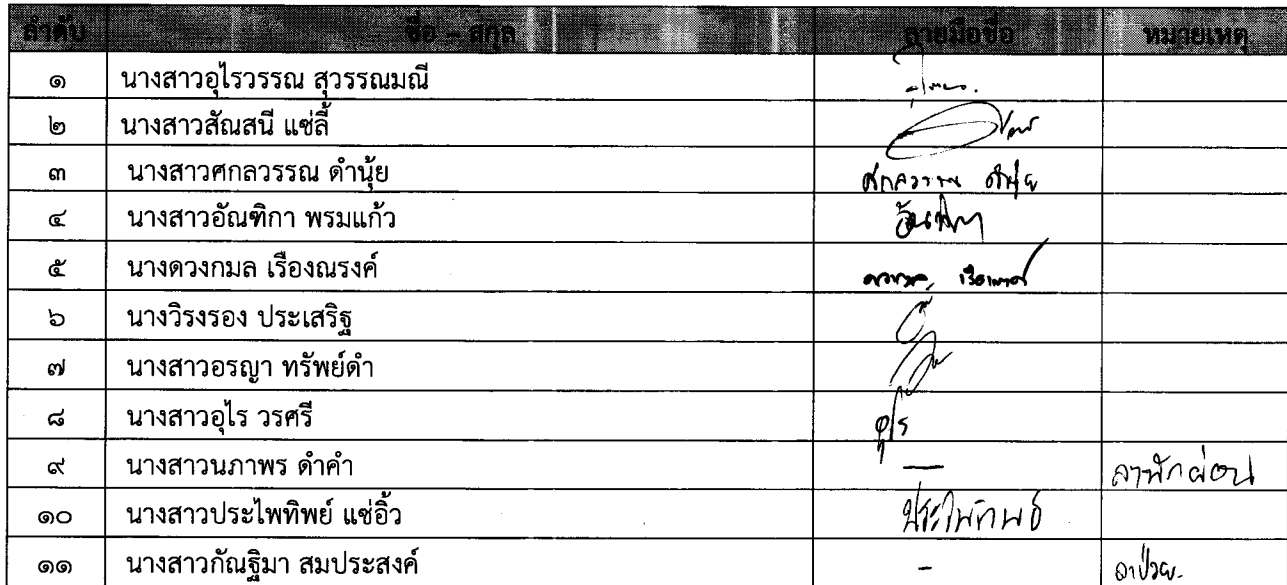 ลำดับ ชื่อ – สกุล ลายมือชื่อ หมายเหตุ
๑ นางสาวอุไรวรรณ สุวรรณมณี
๒ นางสาวสัณสนี แซ่ลี้
๓ นางสาวศกลวรรณ ดำนุ้ย ศกลวรรณ ดำนุ้ย
๔ นางสาวอัณฑิกา พรมแก้ว
๕ นางดวงกมล เรืองณรงค์
๖ นางวิรงรอง ประเสริฐ
๗ นางสาวอรญา ทรัพย์ดำ
๘ นางสาวอุไร วรศรี อุไร
๙ นางสาวนภาพร ดำคำ — ลาพักผ่อน
๑๐ นางสาวประไพทิพย์ แซ่อิ้ว ประไพทิพย์
๑๑ นางสาวกัณฐิมา สมประสงค์ - ลาป่วย